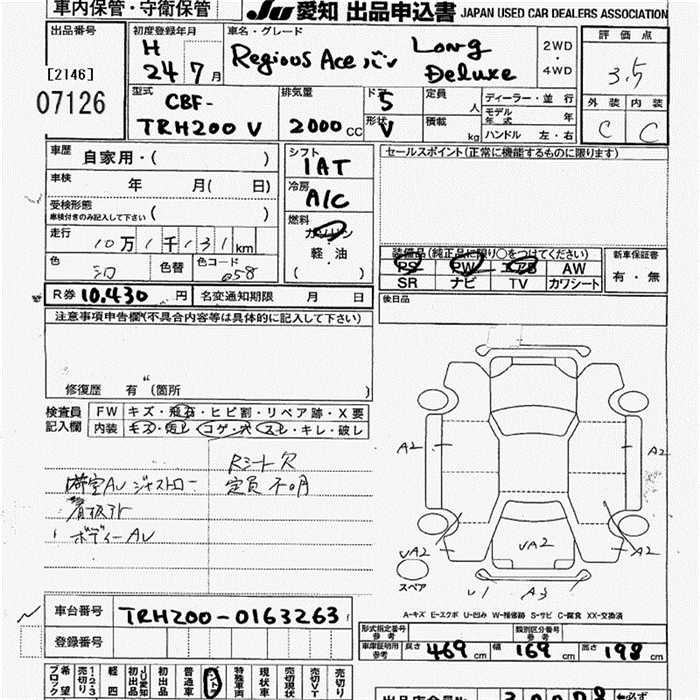 車内保管・守衛保管
JU 愛知 出品申込書 JAPAN USED CAR DEALERS ASSOCIATION
出品番号
[2146]
07126
初度登録年月
H 24年 7月
車名・グレード
Regious Ace バン Long Deluxe
2WD
・
4WD
評価点
3.5
外装 内装
C C
型式
CBF-
TRH200 V
排気量
2000 CC
ドア 5
形状 V
定員 人
積載 kg
ディーラー・並行
モデル年式 年
ハンドル 左・右
車歴 自家用・( )
車検 年 月( 日)
受検形態
車検付きのみ記入して下さい ( )
走行 10万1千131km
色 色替 色コード 058
シフト
1AT
冷房
A/C
燃料
ガソリン
軽・油
( ・ )
セールスポイント(正常に機能するものに限ります)
装備品(純正品に限り○をつけてください)
PS PW AW
SR ナビ TV カワシート
新車保証書
有・無
後日品
R券 10,430 円 名変通知期限 月 日
注意事項申告欄(不具合内容等は具体的に記入して下さい)
修復歴 有 (箇所 )
検査員
記入欄
FW キズ・飛石・ヒビ割・リペア跡・X要
内装 キズ・汚レ・コゲ・穴・スレ・キレ・破レ
Rシート欠
定員 不明
ボディーAU
A2
A2
UA2
UA2
A2
U1
A3
スペア
A-キズ E-エクボ U-凹み W-補修跡 S-サビ C-腐食 XX-交換済
車台番号 TRH200-0163263
登録番号
形式指定番号
参考
類別区分番号
参考
車庫証明用
参考
長さ 469 cm 幅 169 cm 高さ 198 cm
希望ブロック
売切り
1・2・3
軽四
JU愛知
初出品
初出品
普通車
特殊車両
現状車
売切現状
売切り
出品店会員No.